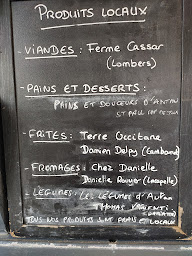 PRODUITS LOCAUX
- VIANDES : Ferme Cassar
(Lombers)
- PAINS ET DESSERTS :
PAINS ET DOUCEURS D'ANTAN
ST PAUL
- FRITES : Terre Occitane
Damien Delpy (Cambond)
- FROMAGES : Chez Danielle
Danielle Rouyer (Lacapelle)
- LEGUMES : LES LEGUMES D'AUTAN
THOMAS
TOUS NOS PRODUITS SONT FRAIS ET LOCAUX